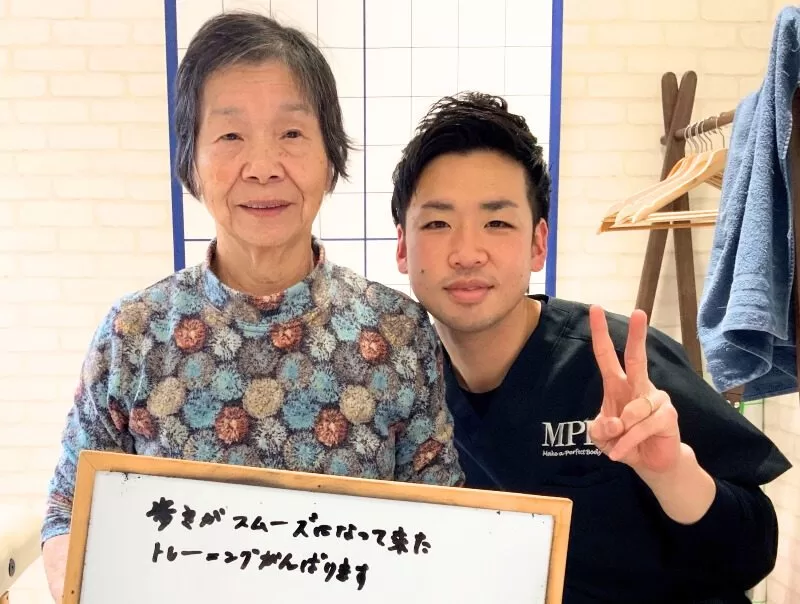 歩きがスムーズになって来た
トレーニングがんばります
Make a Perfect Body